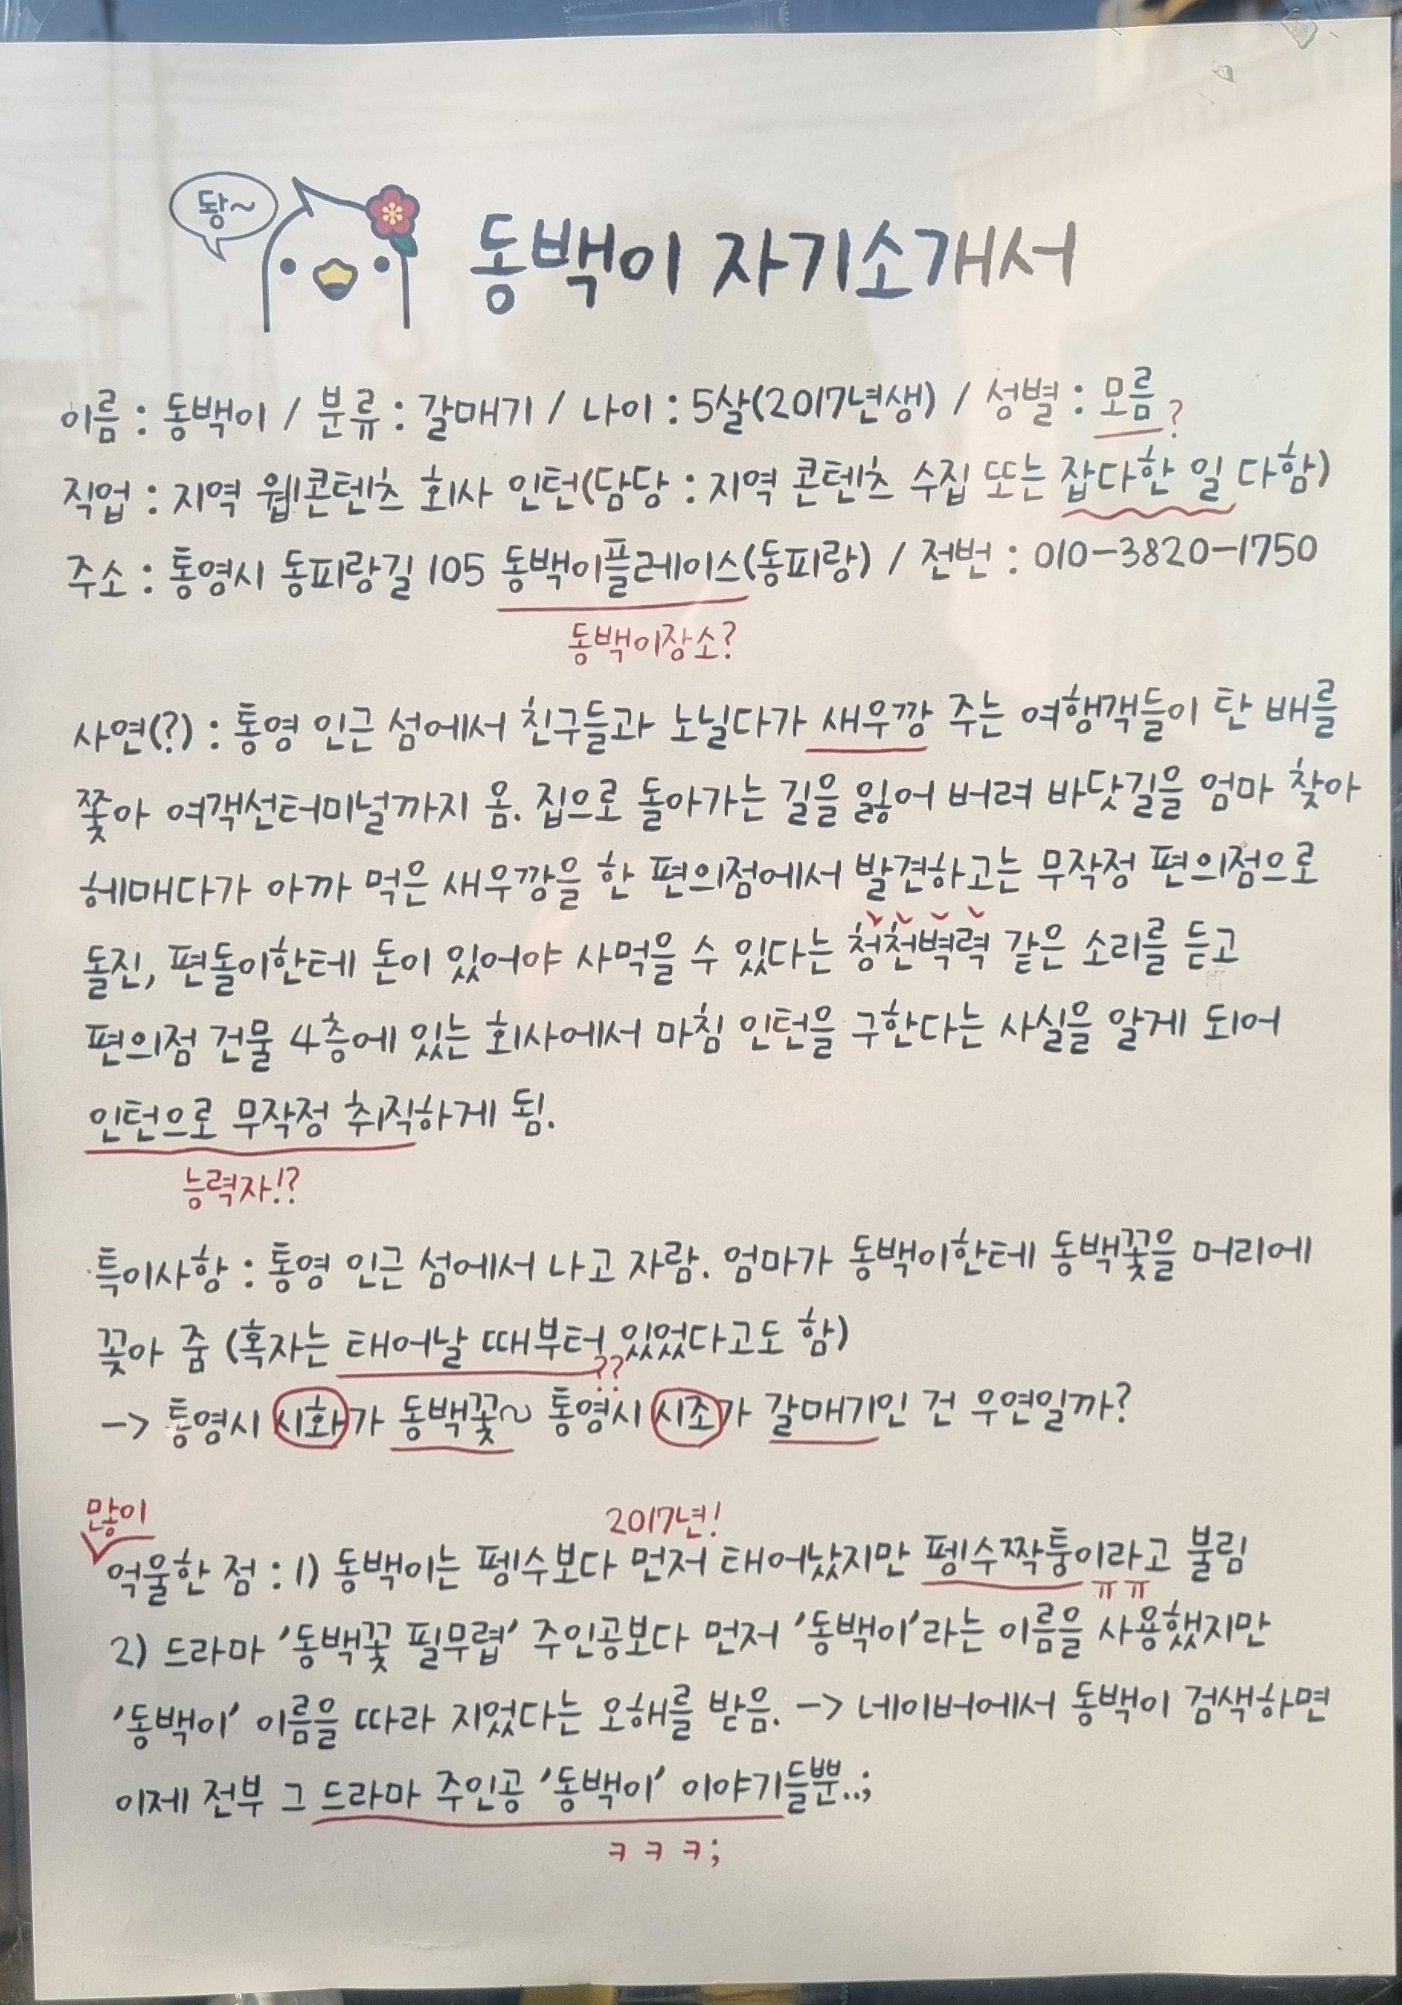 동~
동백이 자기소개서
이름 : 동백이 / 분류 : 갈매기 / 나이 : 5살(2017년생) / 성별 : 모름
?
직업 : 지역 웹콘텐츠 회사 인턴(담당 : 지역 콘텐츠 수집 또는 잡다한 일 다함)
주소 : 통영시 동피랑길 105 동백이플레이스(동피랑) / 전번 : 010-3820-1750
동백이장소?
사연(?) : 통영 인근 섬에서 친구들과 노닐다가 새우깡 주는 여행객들이 탄 배를
쫓아 여객선터미널까지 옴. 집으로 돌아가는 길을 잃어 버려 바닷길을 엄마 찾아
헤매다가 아까 먹은 새우깡을 한 편의점에서 발견하고는 무작정 편의점으로
돌진, 편돌이한테 돈이 있어야 사먹을 수 있다는 청천벽력 같은 소리를 듣고
편의점 건물 4층에 있는 회사에서 마침 인턴을 구한다는 사실을 알게 되어
인턴으로 무작정 취직하게 됨.
능력자!?
특이사항 : 통영 인근 섬에서 나고 자람. 엄마가 동백이한테 동백꽃을 머리에
꽂아 줌 (혹자는 태어날 때부터 있었다고도 함)
??
-> 통영시 시화가 동백꽃~ 통영시 시조가 갈매기인 건 우연일까?
많이
2017년!
억울한 점 : 1) 동백이는 펭수보다 먼저 태어났지만 펭수짝퉁이라고 불림
ㅠㅠ
2) 드라마 '동백꽃 필무렵' 주인공보다 먼저 '동백이'라는 이름을 사용했지만
'동백이' 이름을 따라 지었다는 오해를 받음. -> 네이버에서 동백이 검색하면
이제 전부 그 드라마 주인공 '동백이' 이야기들뿐..;
ㅋㅋㅋ;